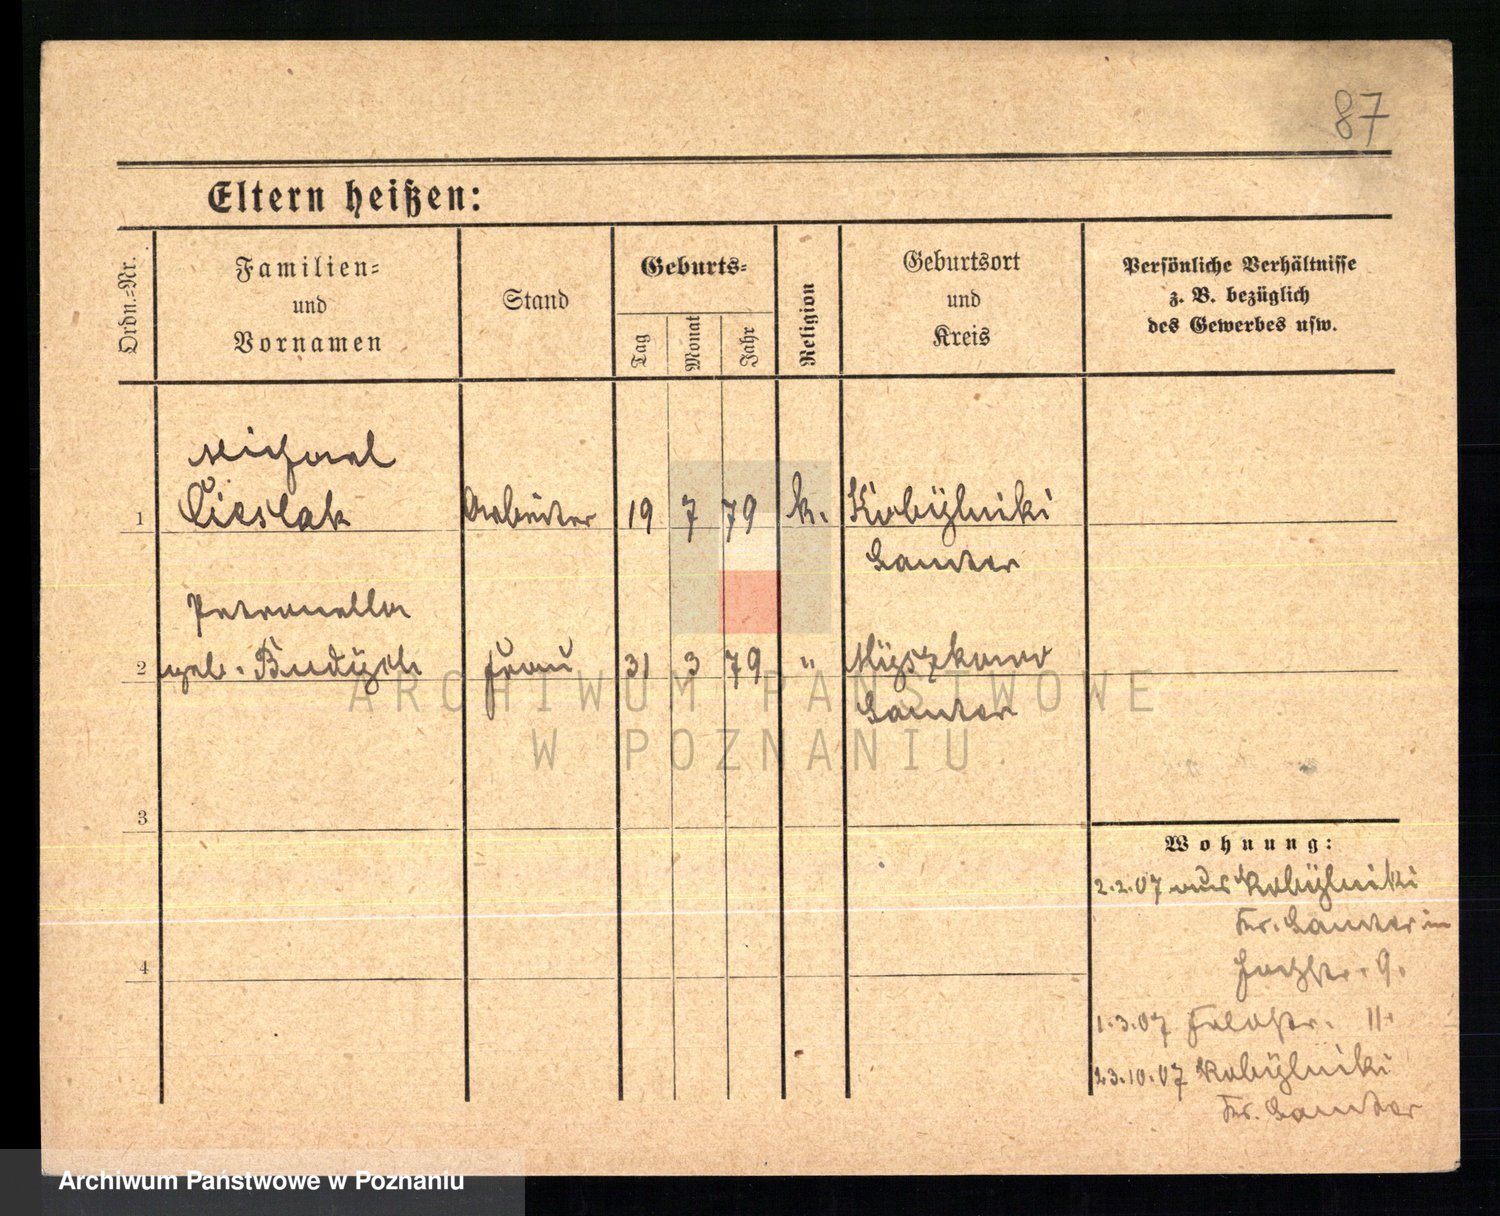 87
Eltern heißen:
Ordn.-Nr.
Familien-
und
Vornamen
Stand
Geburts-
Tag
Monat
Jahr
Religion
Geburtsort
und
Kreis
Persönliche Verhältnisse
z. B. bezüglich
des Gewerbes usw.
Michael
1 Cieslak Arbeiter 19 7 79 k. Kobylniki
Samter
Petronella
2 geb. Frau 31 3 79 " Myszkowo
Samter
ARCHIWUM PAŃSTWOWE
W POZNANIU
3
Wohnung:
2.2.07 aus Kobylniki
Kr. Samter in
9.
4
1.3.07 Feldstr. 11.
23.10.07 Kobylniki
Kr. Samter
Archiwum Państwowe w Poznaniu